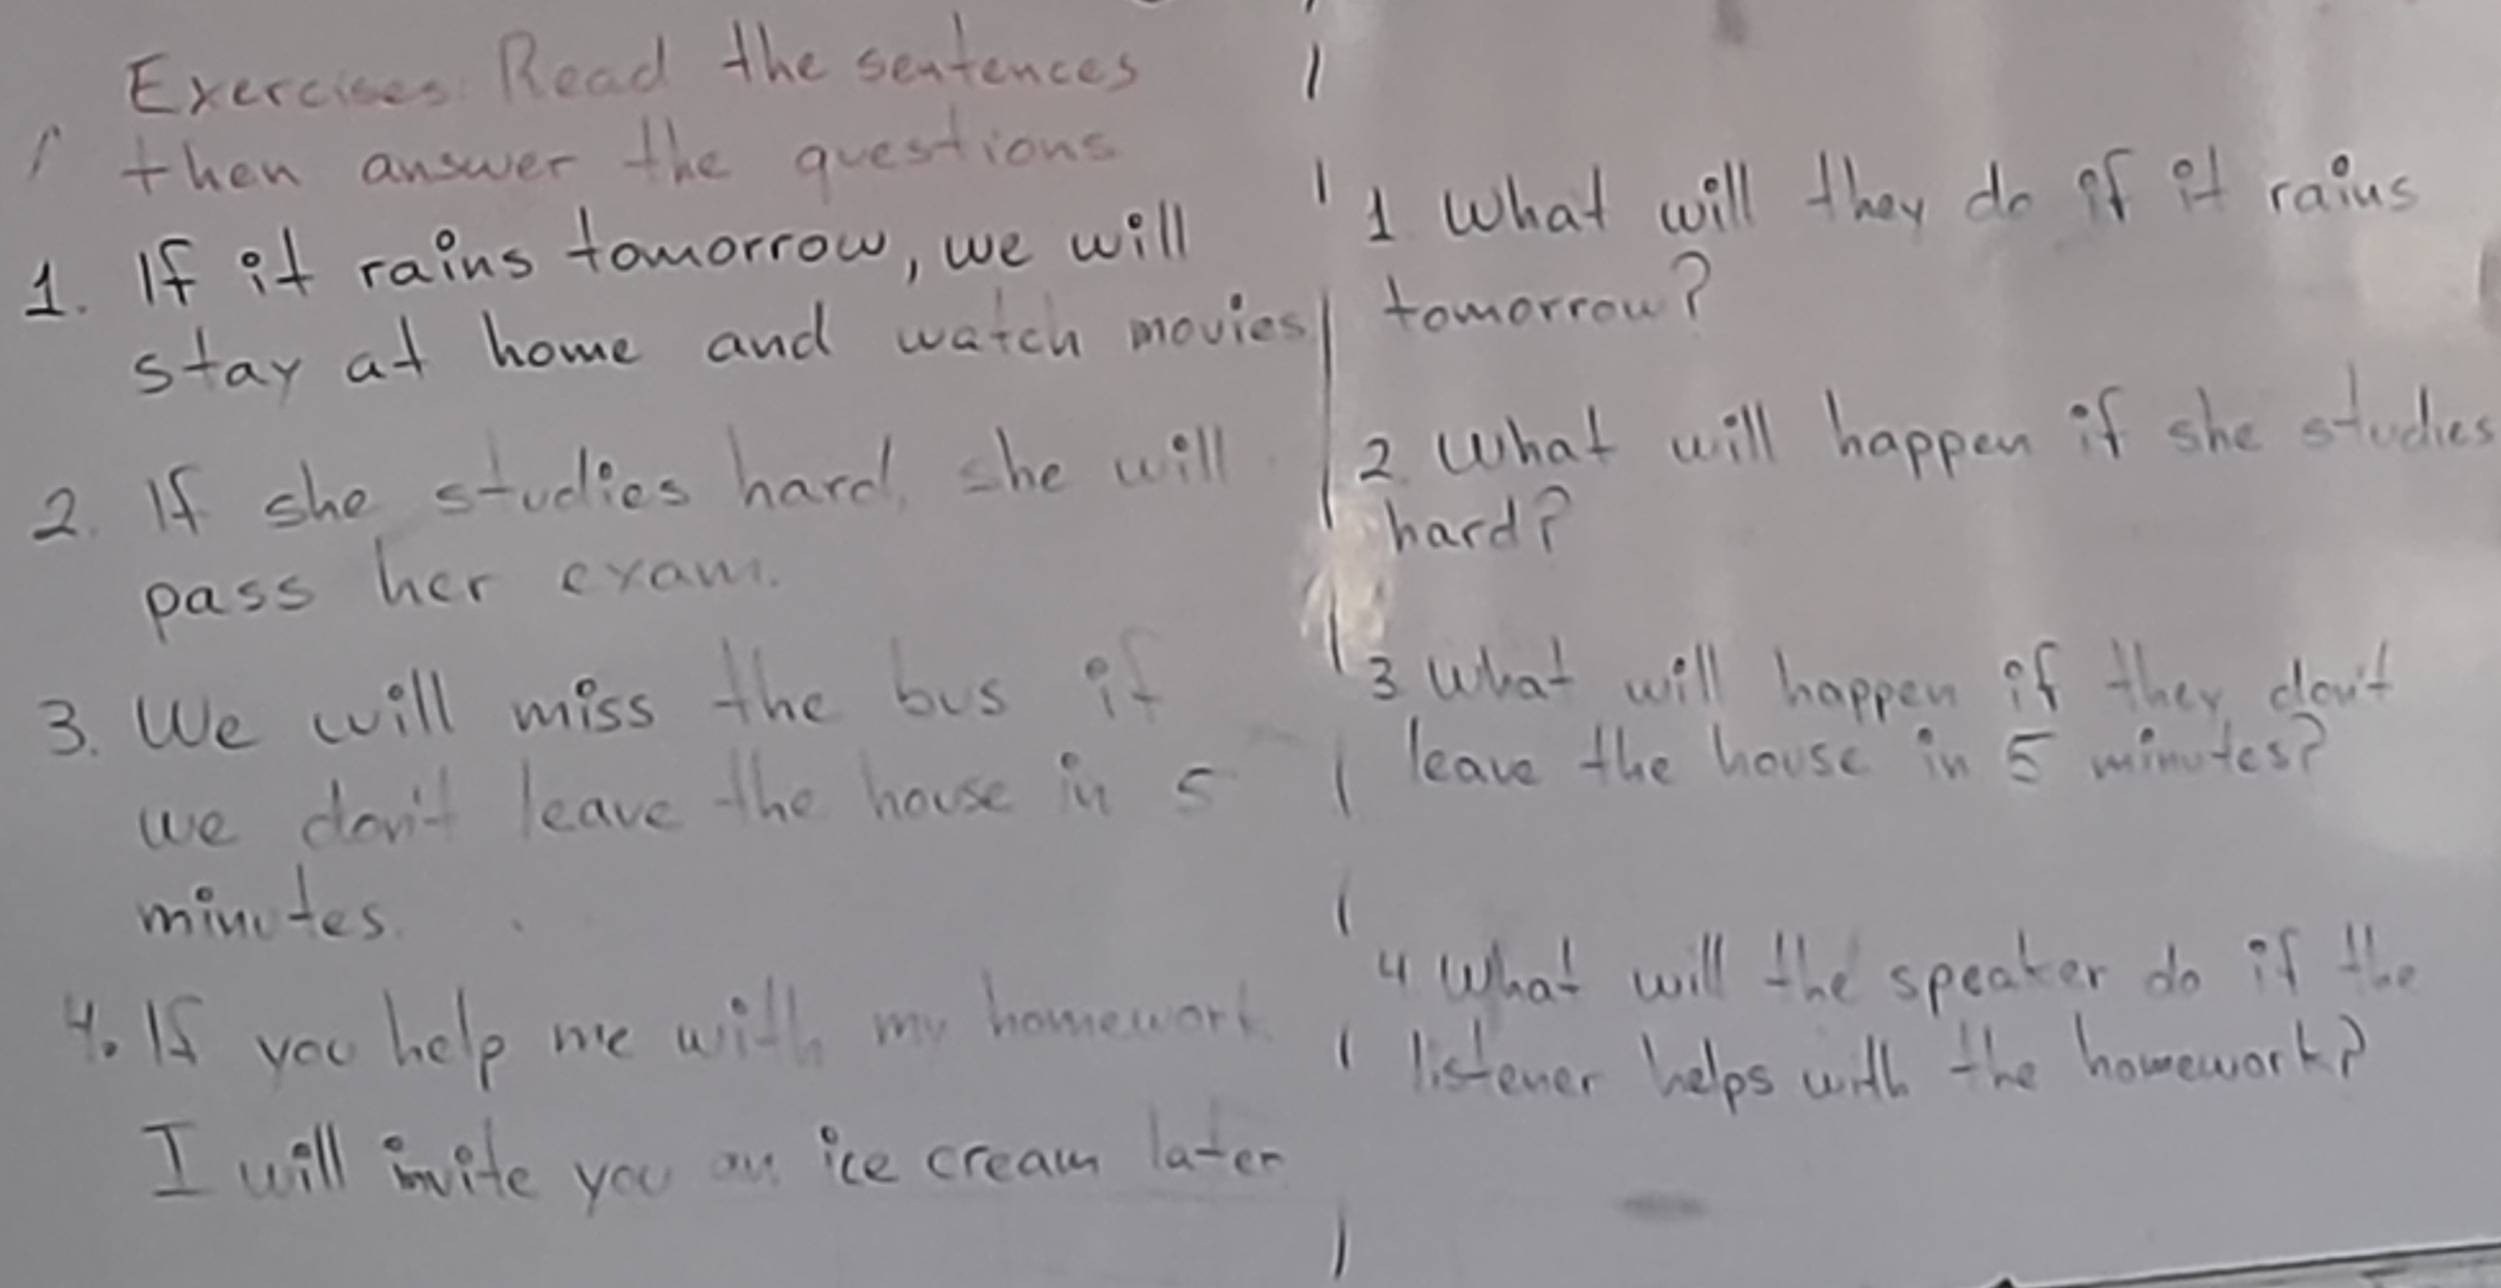 Exercises: Read the sentences
then answer the questions
1. If it rains tomorrow, we will
stay at home and watch movies
2. If she studies hard, she will
pass her exam.
3. We will miss the bus if
we don't leave the house in 5
minutes.
4. If you help me with my homework
I will invite you an ice cream later
1 What will they do if it rains
tomorrow?
2. What will happen if she studies
hard?
3 What will happen if they don't
leave the house in 5 minutes?
4 What will the speaker do if the
listener helps with the homework?